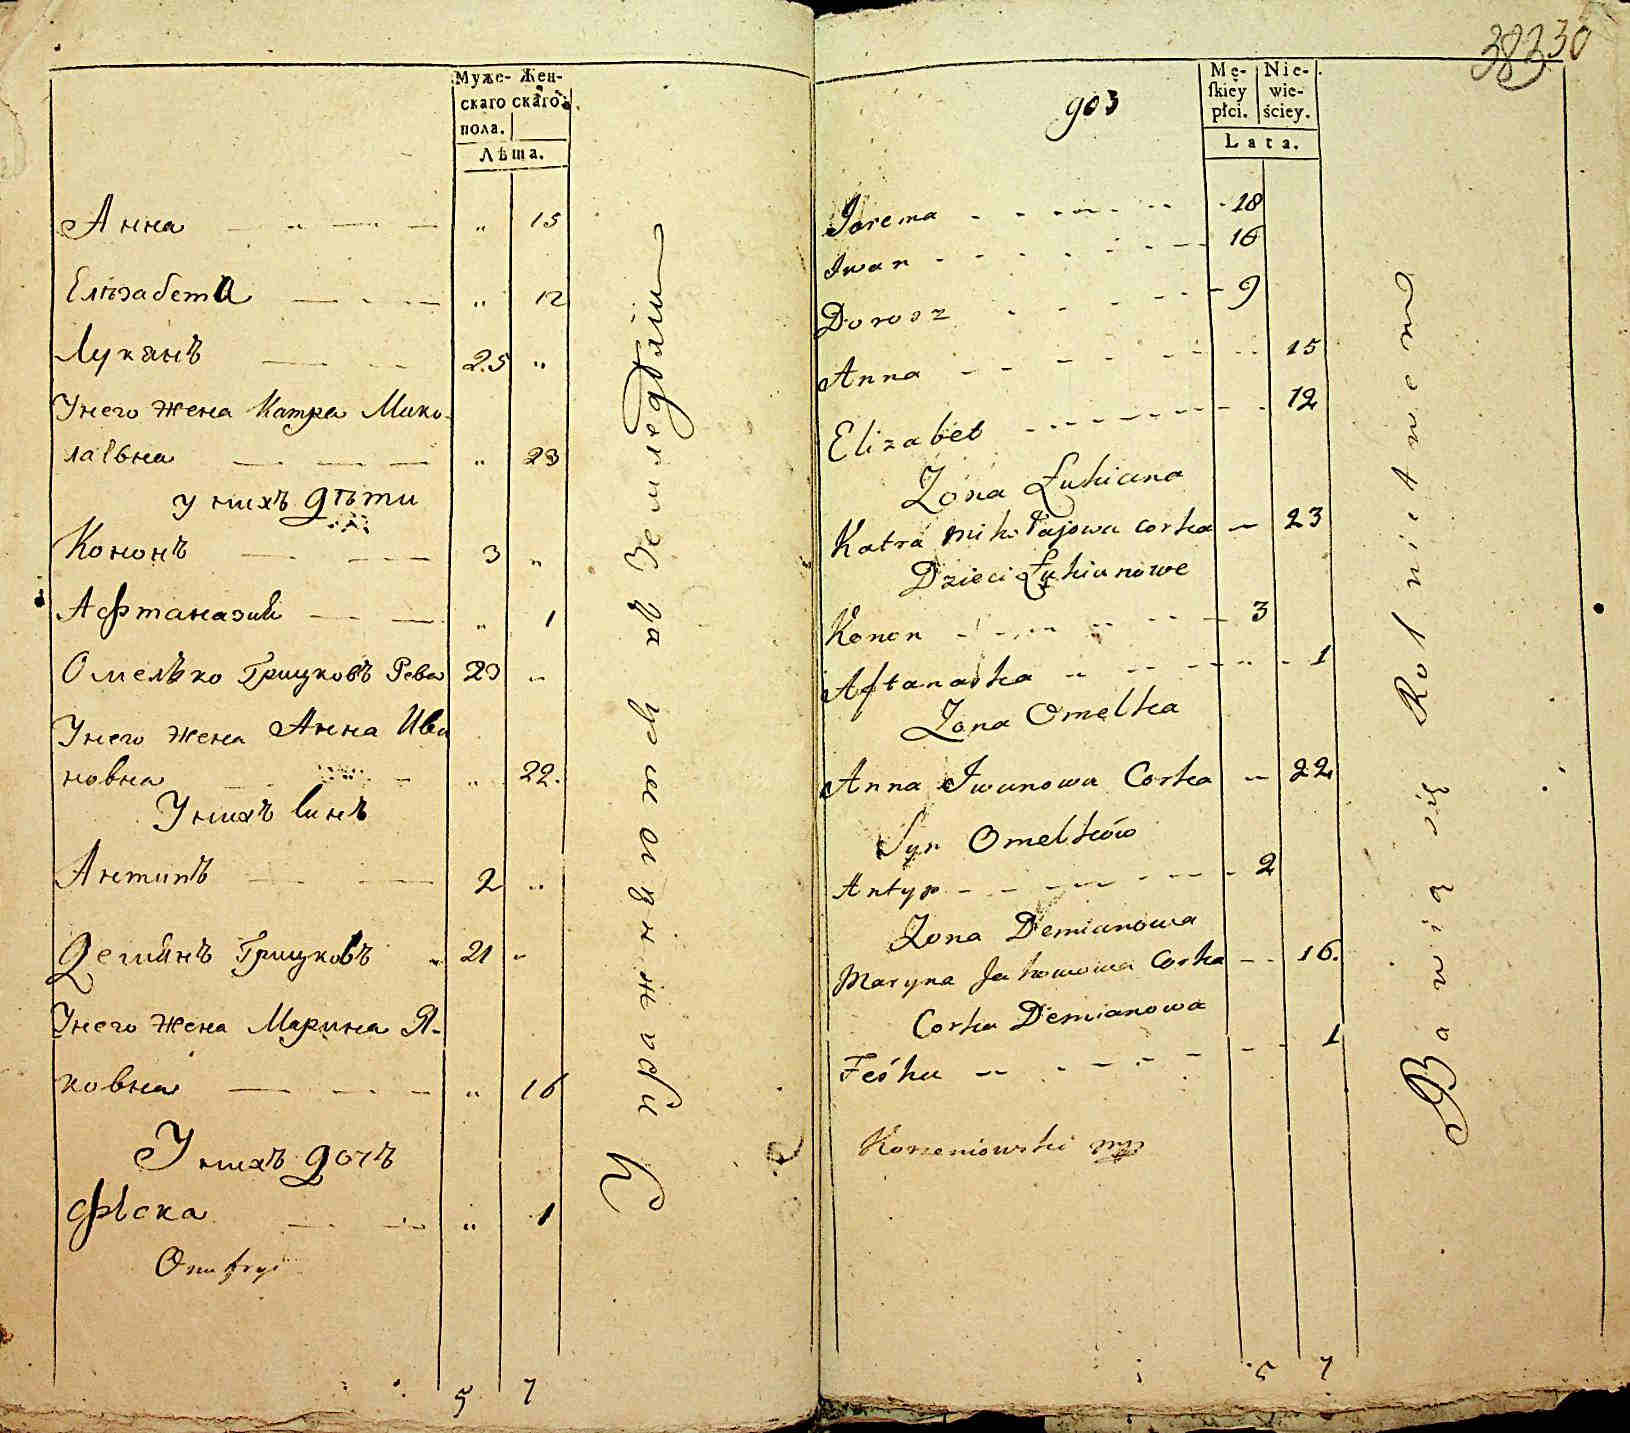 Муже- Жен-
скаго скаго
пола.
Лѣта.
Анна " 15
Елѣзабета " 12
Лукянъ 25 "
Унего жена Катра Мико-
лаевна " 23
у нихъ дѣти
Кононъ 3 "
Афтаназий " 1
Омелько Грицковъ Рева 23 "
Унего жена Анна Ива
новна " 22.
Унихъ синъ
Антипъ 2 "
Демянъ Грицковъ 21 "
Унего жена Марина Я-
ковна " 16
Унихъ дочъ
Фѣска " 1
Onufry
5 7
Упражняются
383 30
903
Mę- Nie-
ſkiey wie-
płci. ściey.
Lata.
Jarema 18
Iwan 16
Dorosz 9
Anna 15
Elizabet 12
Zona Łukiana
Katra Mikołajowa corka 23
Dzieci Łukianowe
Konon 3
Aftanaska 1
Zona Omelka
Anna Iwanowa Corka 22
Syn Omelków
Antyp 2
Zona Demianowa
Maryna Jakowowa Corka 16.
Corka Demianowa
Feśka 1
Korzeniowski mp
5 7
Bawią się Rolnictwem